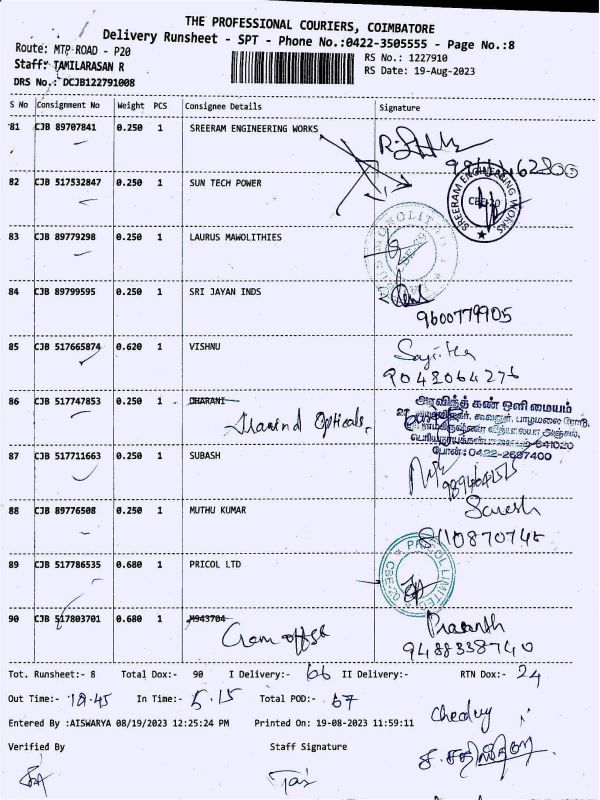 THE PROFESSIONAL COURIERS, COIMBATORE
Delivery Runsheet - SPT - Phone No.:0422-3505555 - Page No.:8
Route: MTP ROAD - P20
RS No.: 1227910
Staff: TAMILARASAN R
RS Date: 19-Aug-2023
DRS No.: DCJB122791008
S No Consignment No Weight PCS Consignee Details Signature
81 CJB 89707841 0.250 1 SREERAM ENGINEERING WORKS
82 CJB 517532847 0.250 1 SUN TECH POWER
SREERAM ENGINEERING WORKS
83 CJB 89779298 0.250 1 LAURUS MAWOLITHIES
84 CJB 89799595 0.250 1 SRI JAYAN INDS
9600779905
85 CJB 517665874 0.620 1 VISHNU
9042064276
86 CJB 517747853 0.250 1 DHARANI
Opticals
அரவிந்த் கண் ஒளி மையம்
போன்: 0422-2697400
87 CJB 517711663 0.250 1 SUBASH
88 CJB 89776508 0.250 1 MUTHU KUMAR
Suresh
8110870745
89 CJB 517786535 0.680 1 PRICOL LTD
PRICOL LIMITED
90 CJB 517803701 0.680 1 M943704
Prasanth
9488338740
Tot. Runsheet:- 8 Total Dox:- 90 I Delivery:- 66 II Delivery:- RTN Dox:- 24
Out Time:- 10.45 In Time:- 5.15 Total POD:- 67
Entered By :AISWARYA 08/19/2023 12:25:24 PM Printed On: 19-08-2023 11:59:11
Verified By Staff Signature